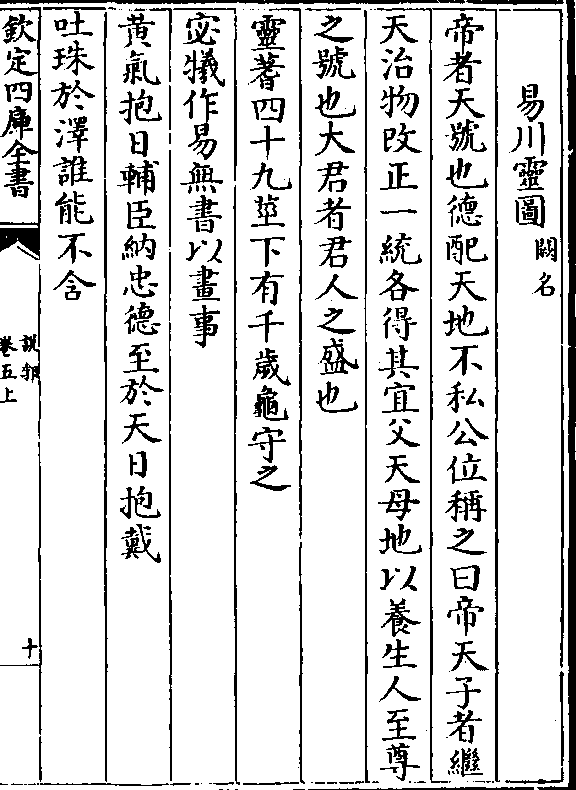 易川靈圖 闕名
帝者天號也德配天地不私公位稱之曰帝天子者繼
天治物改正一統各得其宜父天母地以養生人至尊
之號也大君者君人之盛也
靈蓍四十九莖下有千歲龜守之
宓犧作易無書以畫事
黃氣抱日輔臣納忠德至於天日抱戴
吐珠於澤誰能不含
欽定四庫全書
說郛
卷五上
十